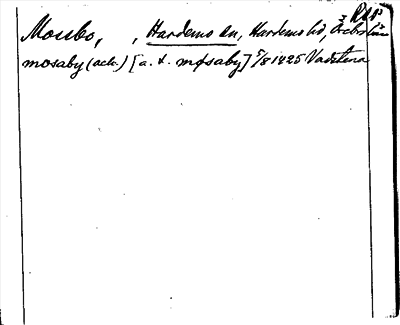 RAP
Mossbo, , Hardemo sn, Hardemo hd, Örebro län
mosaby (ack.) [a. t. møsaby] 5/8 1425 Vadstena